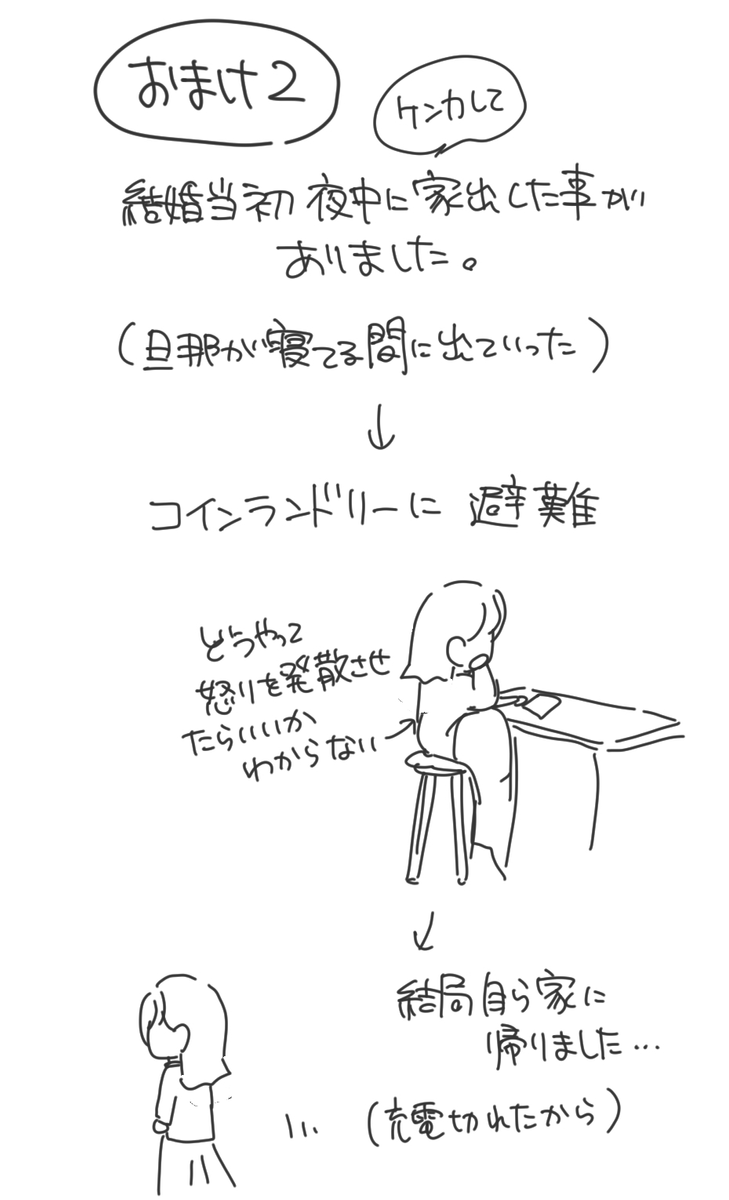 おまけ2
ケンカして
結婚当初 夜中に家出した事が
ありました。
(旦那が寝てる間に出ていった)
↓
コインランドリーに 避難
どうやって
怒りを発散させ
たらいいか
わからない
↓
結局自ら家に
帰りました…
(充電切れたから)